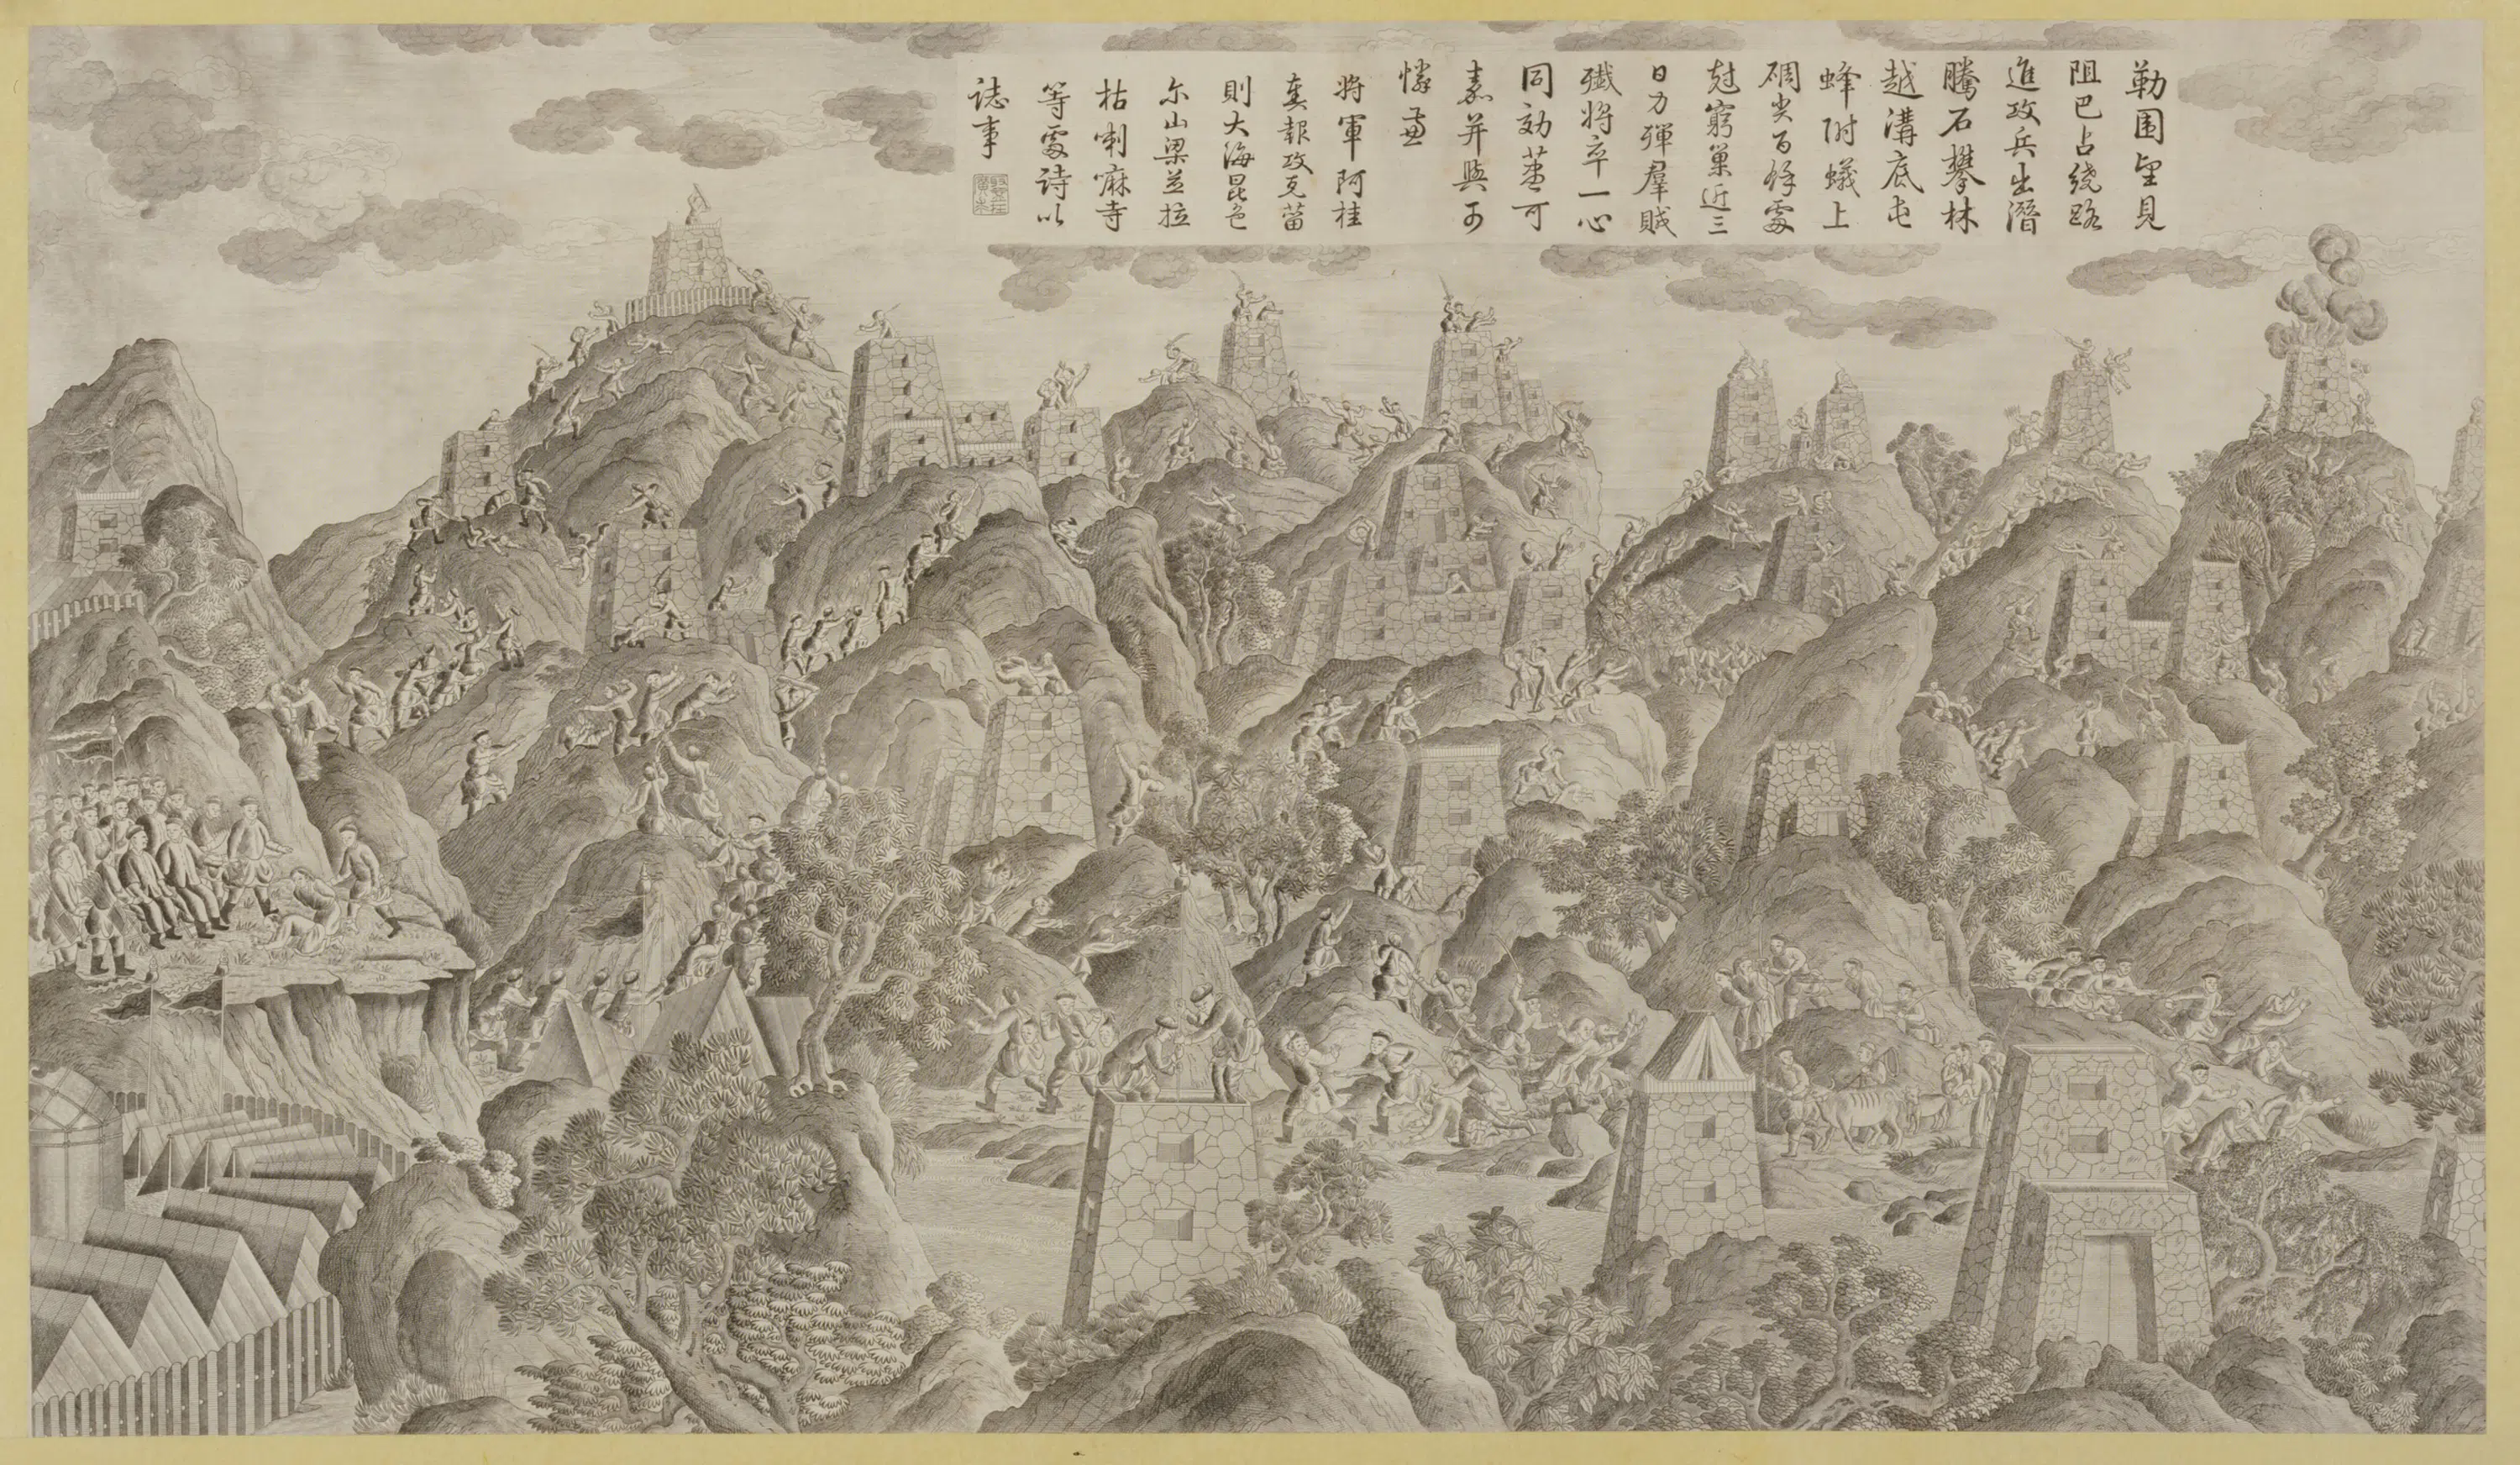 勒围望見
阻巴占繞路
進攻兵出潛
騰石攀林
越溝底屯
蜂附蟻上
碉尖百餘處
尅窮巢近三
日力殫羣賊
殲將卒一心
同効藎可
嘉并與可
憐兼
將軍阿桂
奏報攻克菑
則大海昆色
尔山梁並拉
枯喇嘛寺
等處詩以
誌事